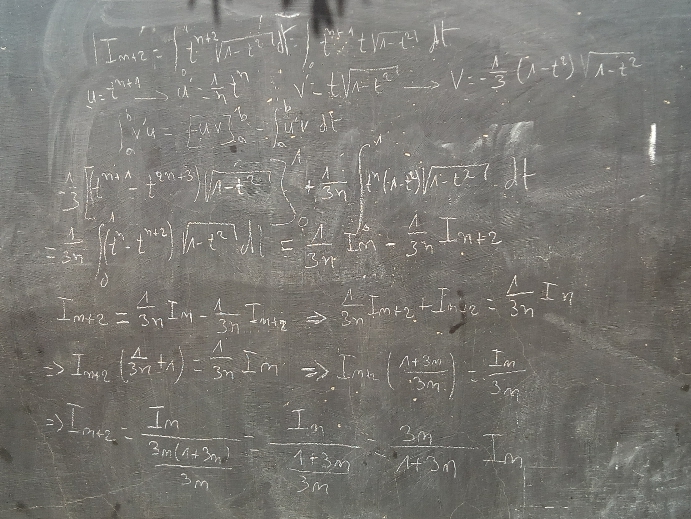 I_{n+2} = ∫_0^1 t^{n+2} √(1-t²) dt = ∫_0^1 t^{n+1} t√(1-t²) dt
u = t^{n+1} → u' = 1/n t^n v' = t√(1-t²) → V = -1/3 (1-t²) √(1-t²)
∫_a^b v'u = [uv]_a^b - ∫_a^b u'v dt
= -1/3 [(t^{n+1} - t^{2n+3}) √(1-t²)]_0^1 + 1/3n ∫_0^1 t^n (1-t²) √(1-t²) dt
= 1/3n ∫_0^1 (t^n - t^{n+2}) √(1-t²) dt = 1/3n I_n - 1/3n I_{n+2}
I_{n+2} = 1/3n I_n - 1/3n I_{n+2} ⇒ 1/3n I_{n+2} + I_{n+2} = 1/3n I_n
⇒ I_{n+2} (1/3n + 1) = 1/3n I_n ⇒ I_{n+2} ((1+3n)/3n) = I_n/3n
⇒ I_{n+2} = I_n/(3n(1+3n)/3n) = I_n/((1+3n)/3n) = 3n/(1+3n) I_n